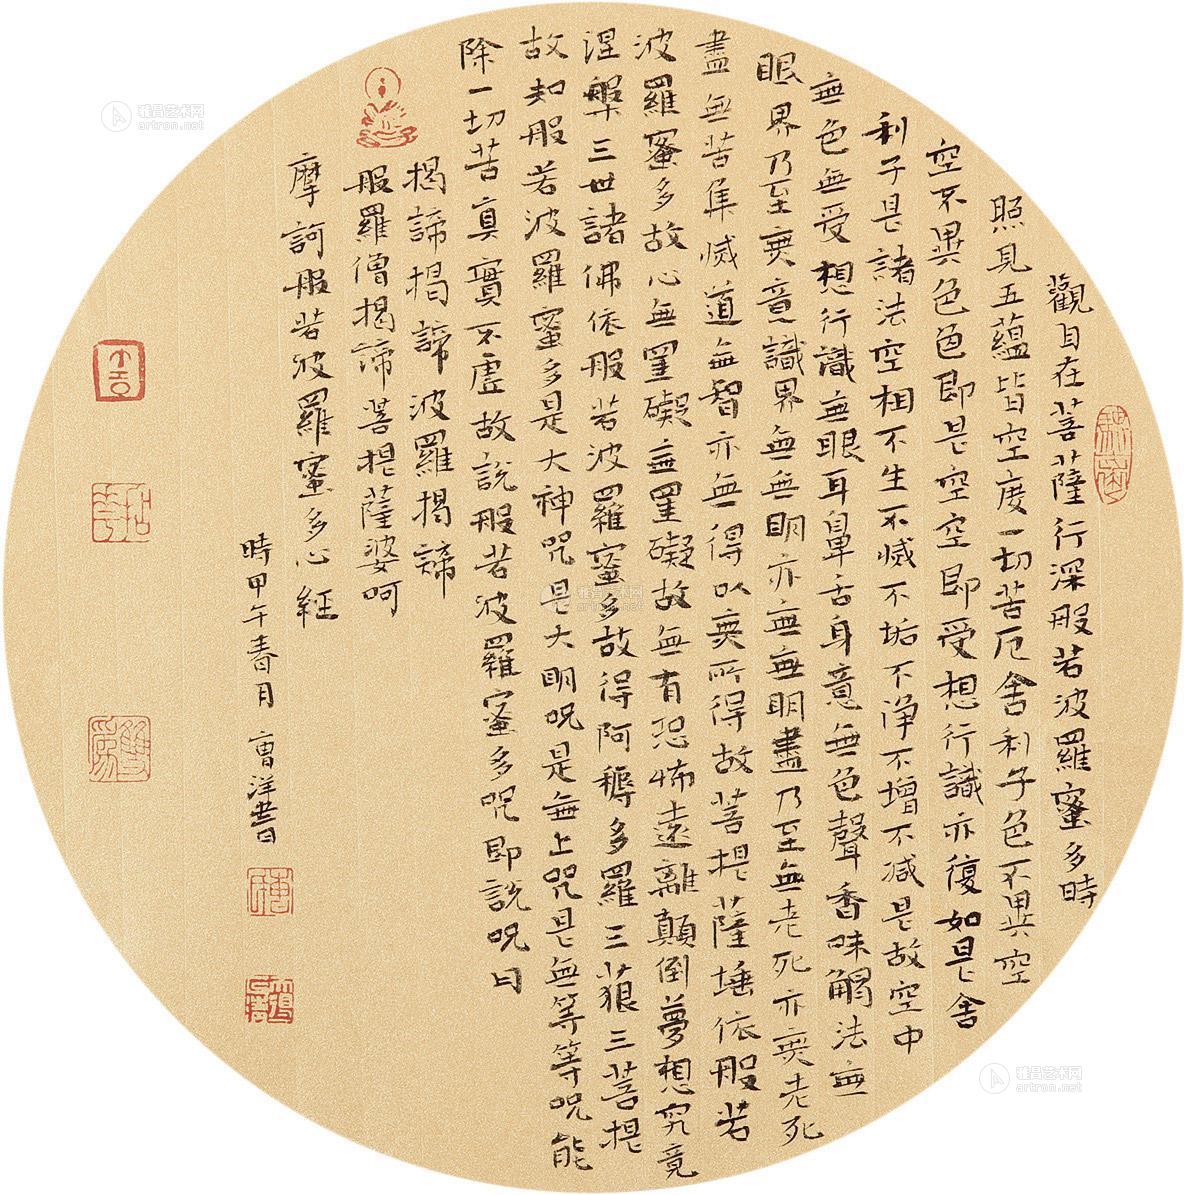 觀自在菩薩行深般若波羅蜜多時
照見五蘊皆空度一切苦厄舍利子色不異空
空不異色色即是空空即受想行識亦復如是舍
利子是諸法空相不生不滅不垢不淨不增不減是故空中
無色無受想行識無眼耳鼻舌身意無色聲香味觸法無
眼界乃至無意識界無無明亦無無明盡乃至無老死亦無老死
盡無苦集滅道無智亦無得以無所得故菩提薩埵依般若
波羅蜜多故心無罣礙無罣礙故無有恐怖遠離顛倒夢想究竟
涅槃三世諸佛依般若波羅蜜多故得阿耨多羅三藐三菩提
故知般若波羅蜜多是大神咒是大明咒是無上咒是無等等咒能
除一切苦真實不虛故說般若波羅蜜多咒即說咒曰
揭諦揭諦波羅揭諦
般羅僧揭諦菩提薩婆呵
摩訶般若波羅蜜多心經
時甲午春月曹洋書
雅昌艺术网
artron.net
雅昌艺术网
artron.net
雅昌艺术网
artron.net